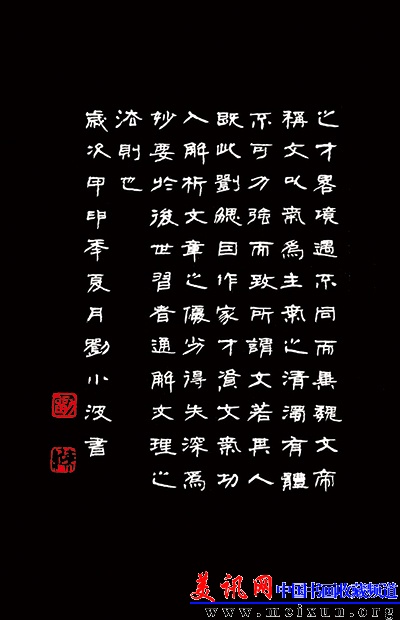 之才畧境遇不同而異魏文帝
稱文以氣為主氣之清濁有體
不可力強而致所謂文若其人
既此劉勰曰作家才資文氣功
入解析文章之優劣得失深爲
妙要於後世習者通解文理之
法則也
歲次甲申季夏月劉小汲書
美讯网 中国书画收藏频道
www.meixun.org